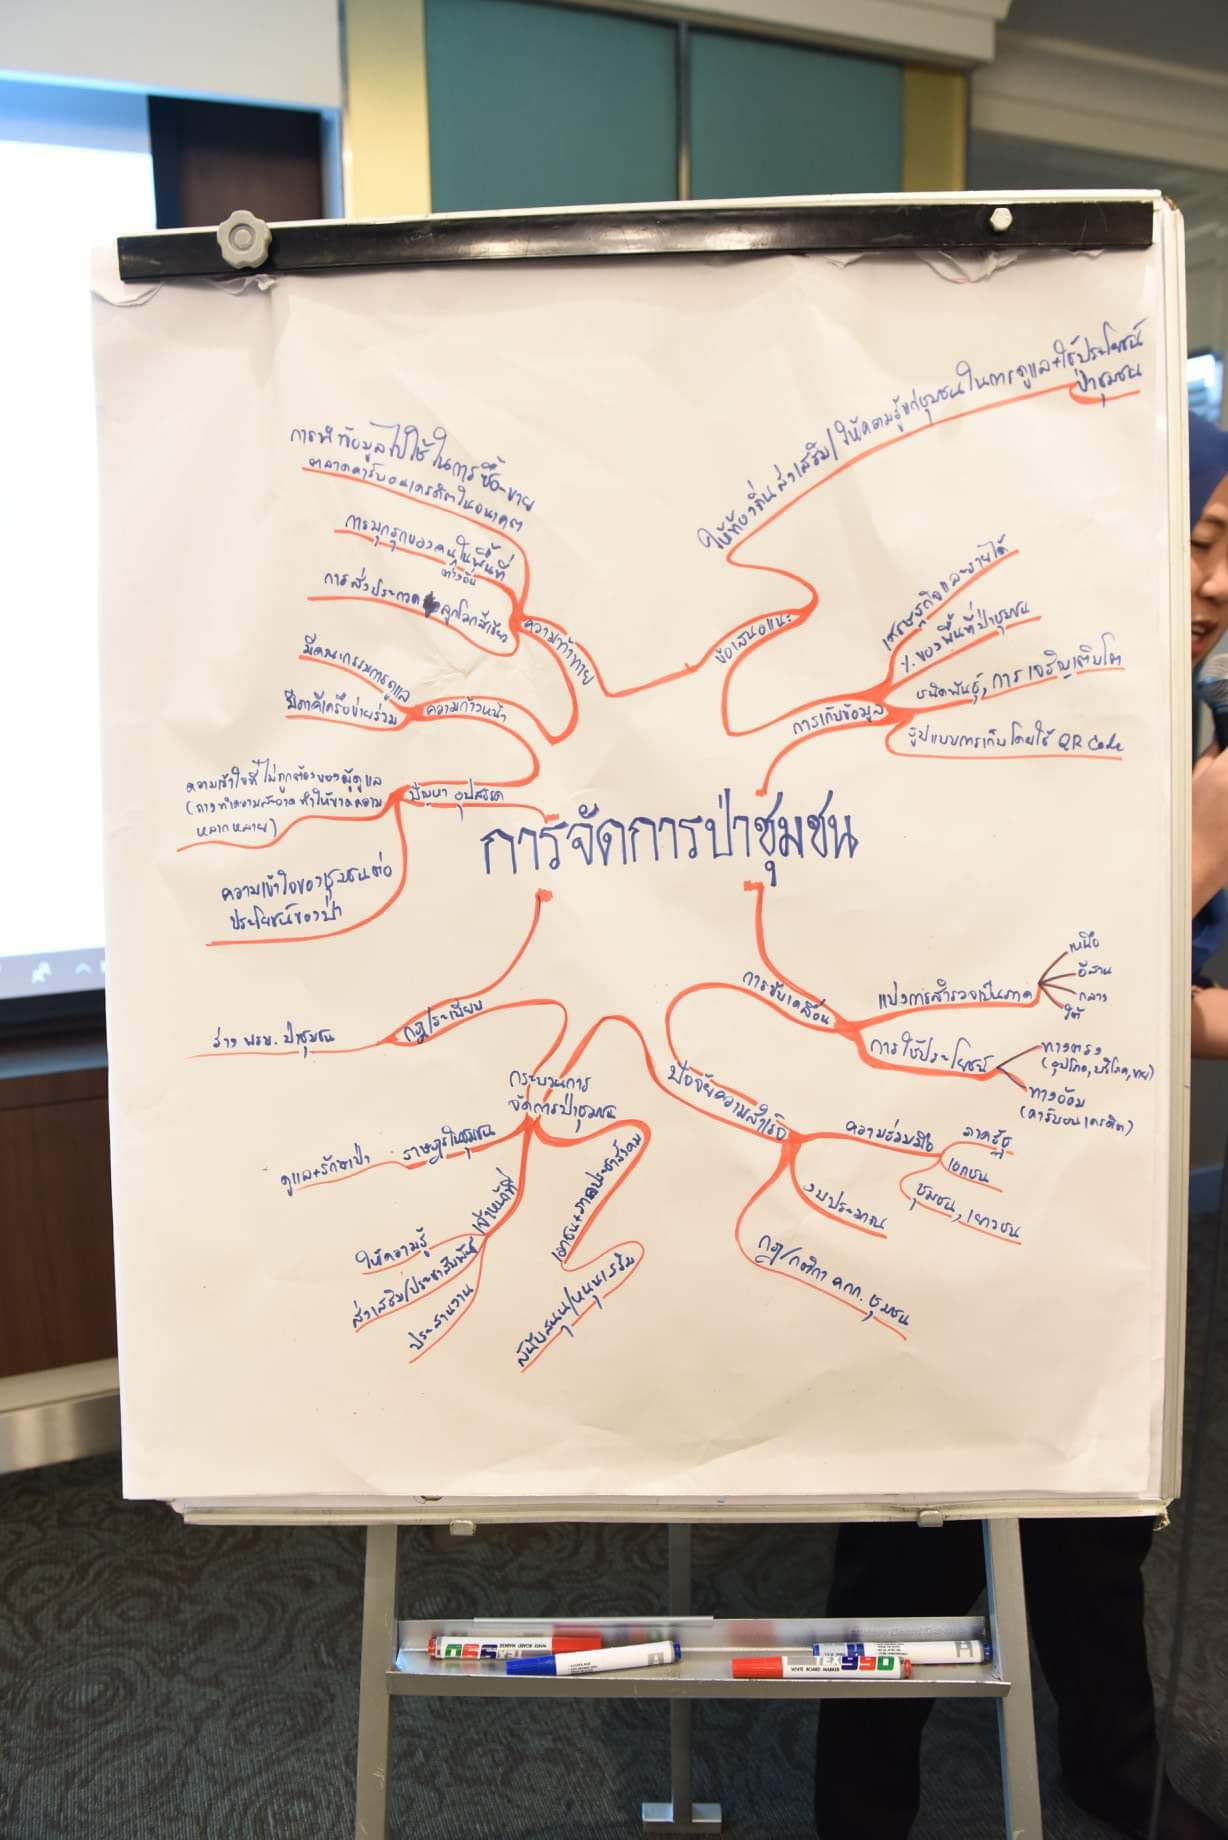 การจัดการป่าชุมชน
การเก็บข้อมูล
เศรษฐกิจและรายได้
% ของพื้นที่ป่าชุมชน
ชนิดพันธุ์, การเจริญเติบโต
รูปแบบการเก็บโดยใช้ QR Code
ข้อเสนอแนะ
ให้ท้องถิ่นส่งเสริม/ให้ความรู้แก่ชุมชนในการดูแล+ใช้ประโยชน์
ป่าชุมชน
การขับเคลื่อน
แบ่งการสำรวจเป็นภาค
เหนือ
อีสาน
กลาง
ใต้
การใช้ประโยชน์
ทางตรง
(อุปโภค,บริโภค,ขาย)
ทางอ้อม
(คาร์บอนเครดิต)
ปัจจัยความสำเร็จ
ความร่วมมือ
ภาครัฐ
เอกชน
ชุมชน, เยาวชน
งบประมาณ
กฎ/กติกา คกก. ชุมชน
กฎ/ระเบียบ
ร่าง พรบ. ป่าชุมชน
กระบวนการ
จัดการป่าชุมชน
ราษฎรในชุมชน
ดูแล+รักษาป่า
เจ้าหน้าที่
ให้ความรู้
ส่งเสริม/ประชาสัมพันธ์
ประสานงาน
เอกชน+ภาคประชาสังคม
สนับสนุน/หนุนเสริม
ปัญหา อุปสรรค
ความเข้าใจที่ไม่ถูกต้องของผู้ดูแล
(การทำความสะอาด ทำให้ขาดความ
หลากหลาย)
ความเข้าใจของชุมชนต่อ
ประโยชน์ของป่า
ความก้าวหน้า
มีคณะกรรมการดูแล
มีภาคีเครือข่ายร่วม
ความท้าทาย
การนำข้อมูลไปใช้ในการซื้อ-ขาย
ตลาดคาร์บอนเครดิตในอนาคต
การบุกรุกของคนในพื้นที่
ต่างถิ่น
การส่งประกวด ลูกโลกสีเขียว